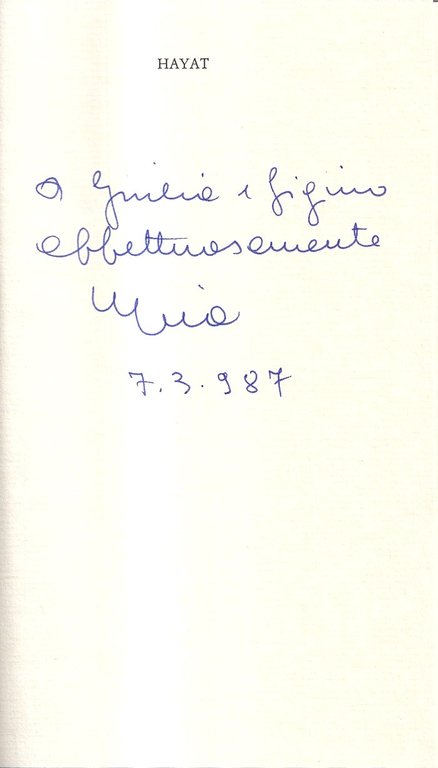 HAYAT
a Giulia e Gigino
affettuosamente
7.3.987